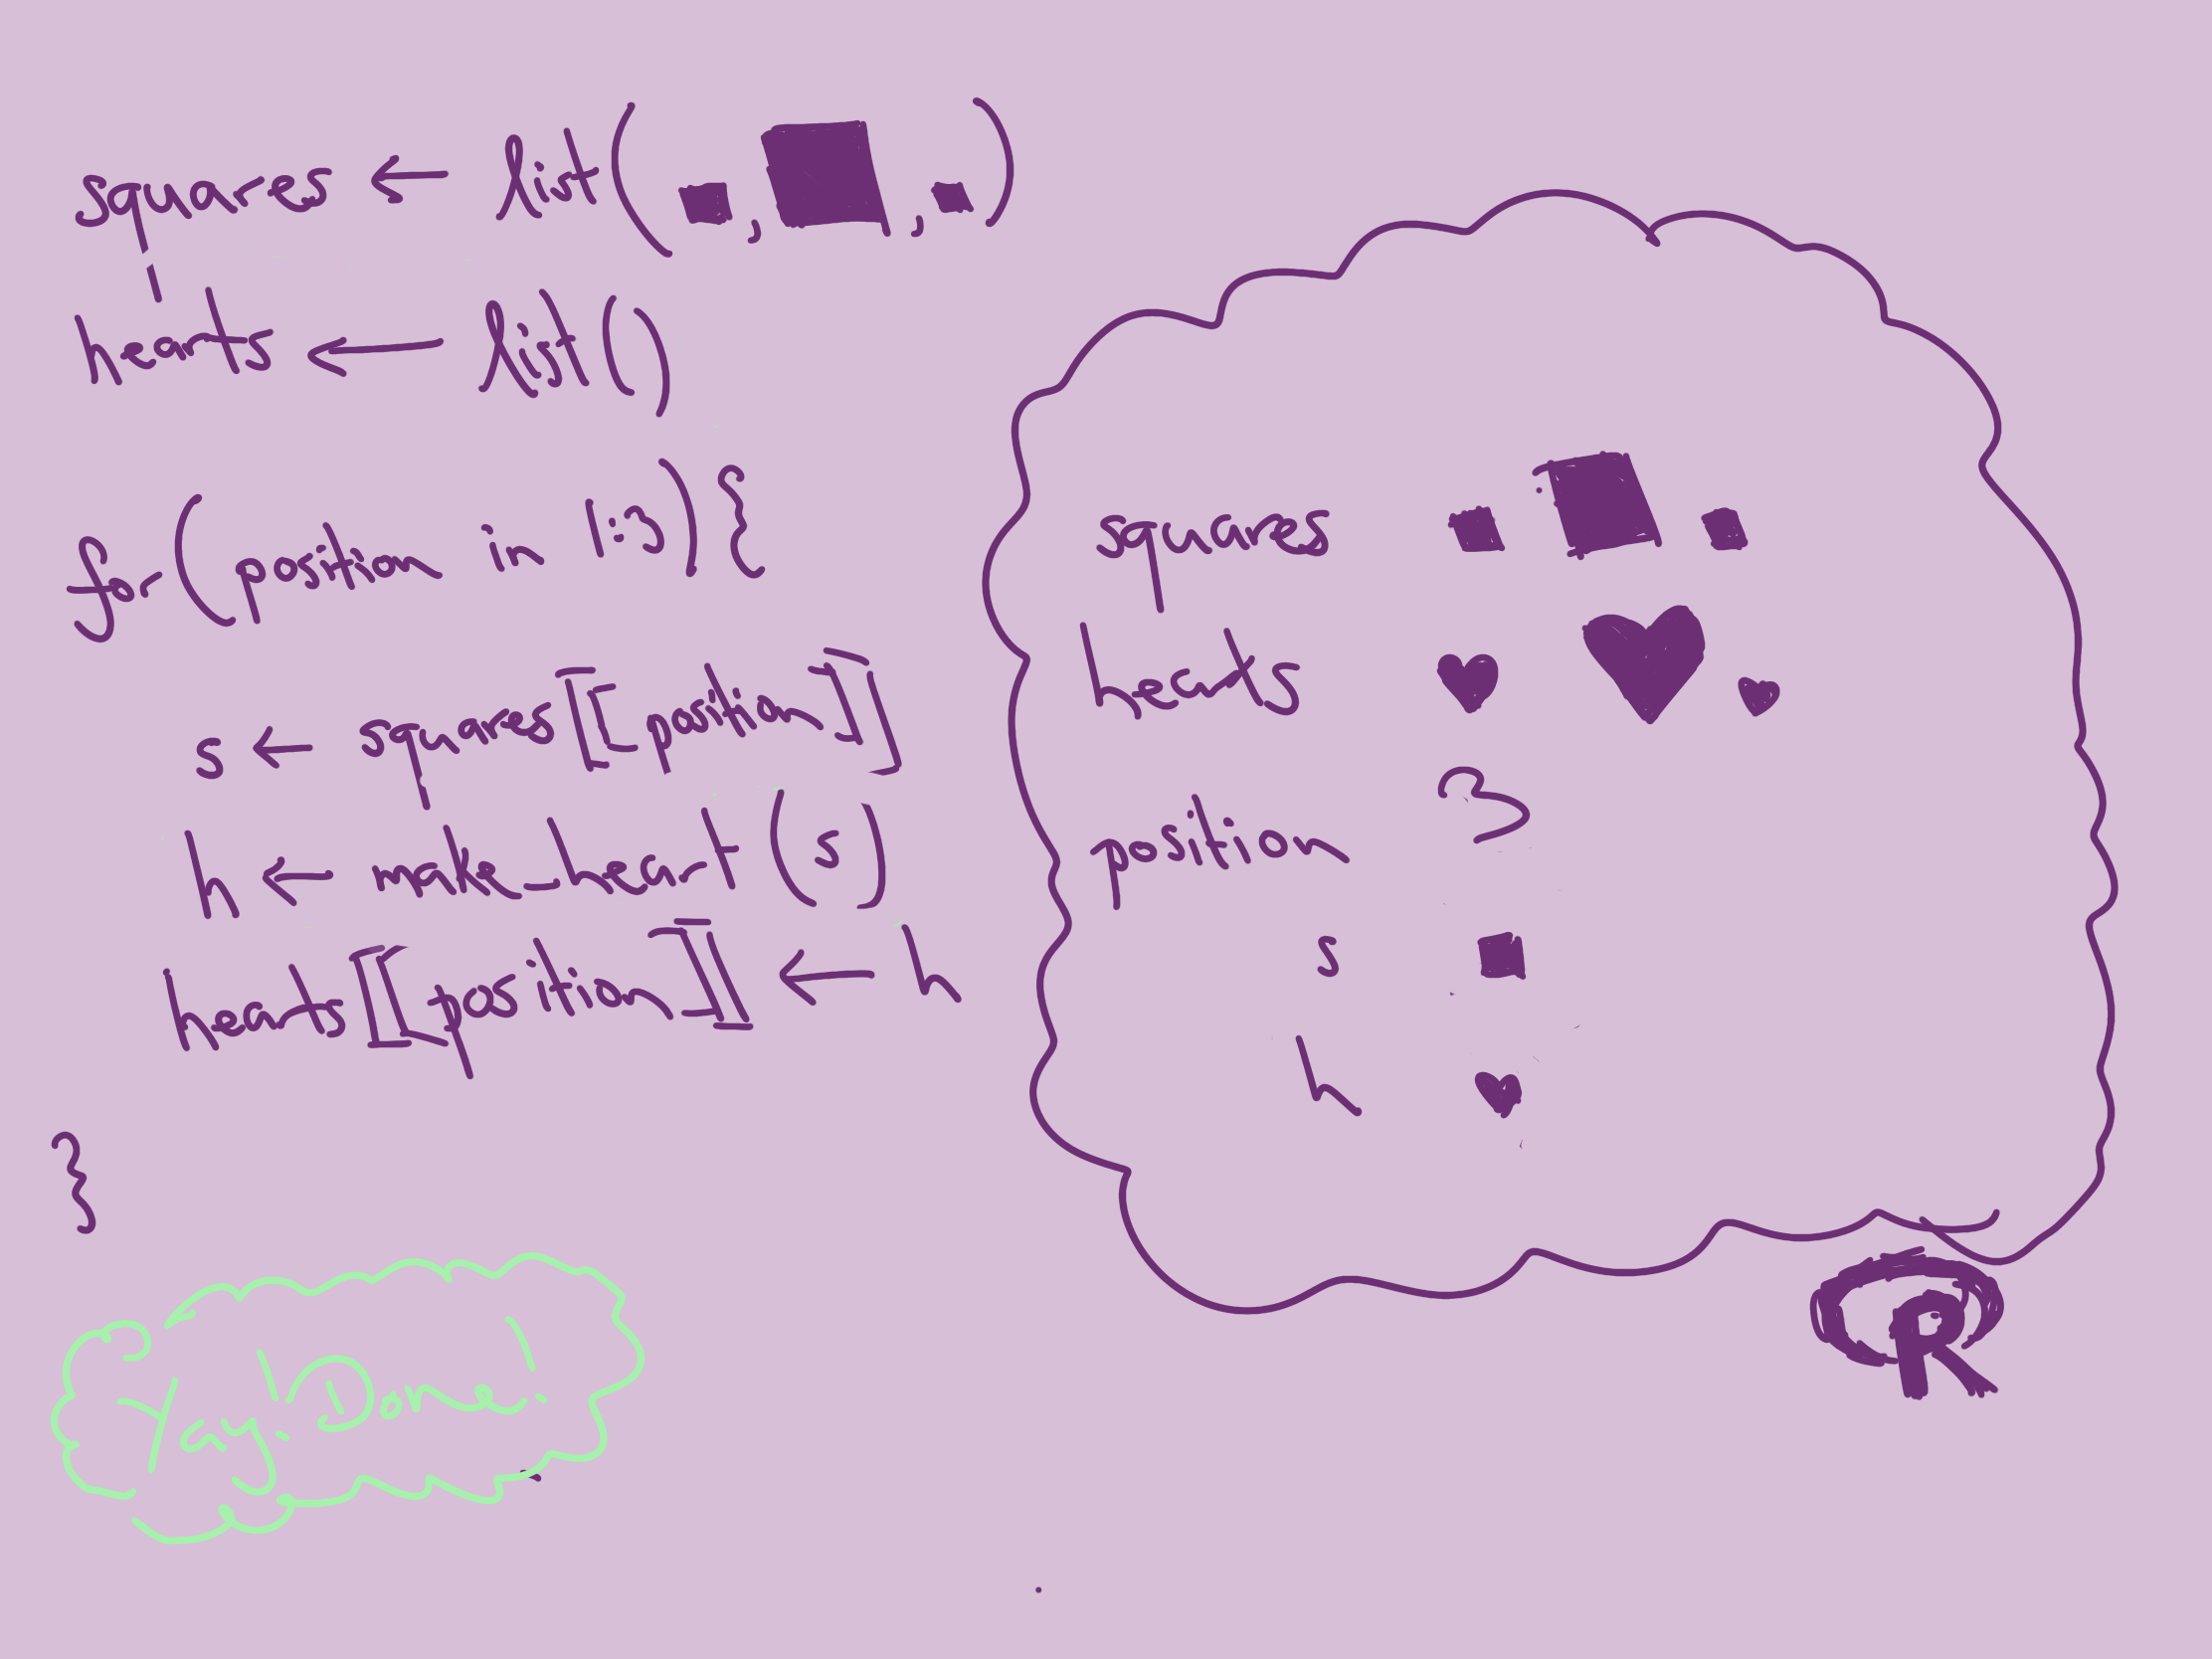 squares ← list(■, ■, ■)
hearts ← list()
for(position in 1:3){
s ← squares[[position]]
h ← make_heart(s)
hearts[[position]] ← h
}
Yay! Done!
squares ■ ■ ■
hearts ♥ ♥ ♥
position 3
s ■
h ♥
R